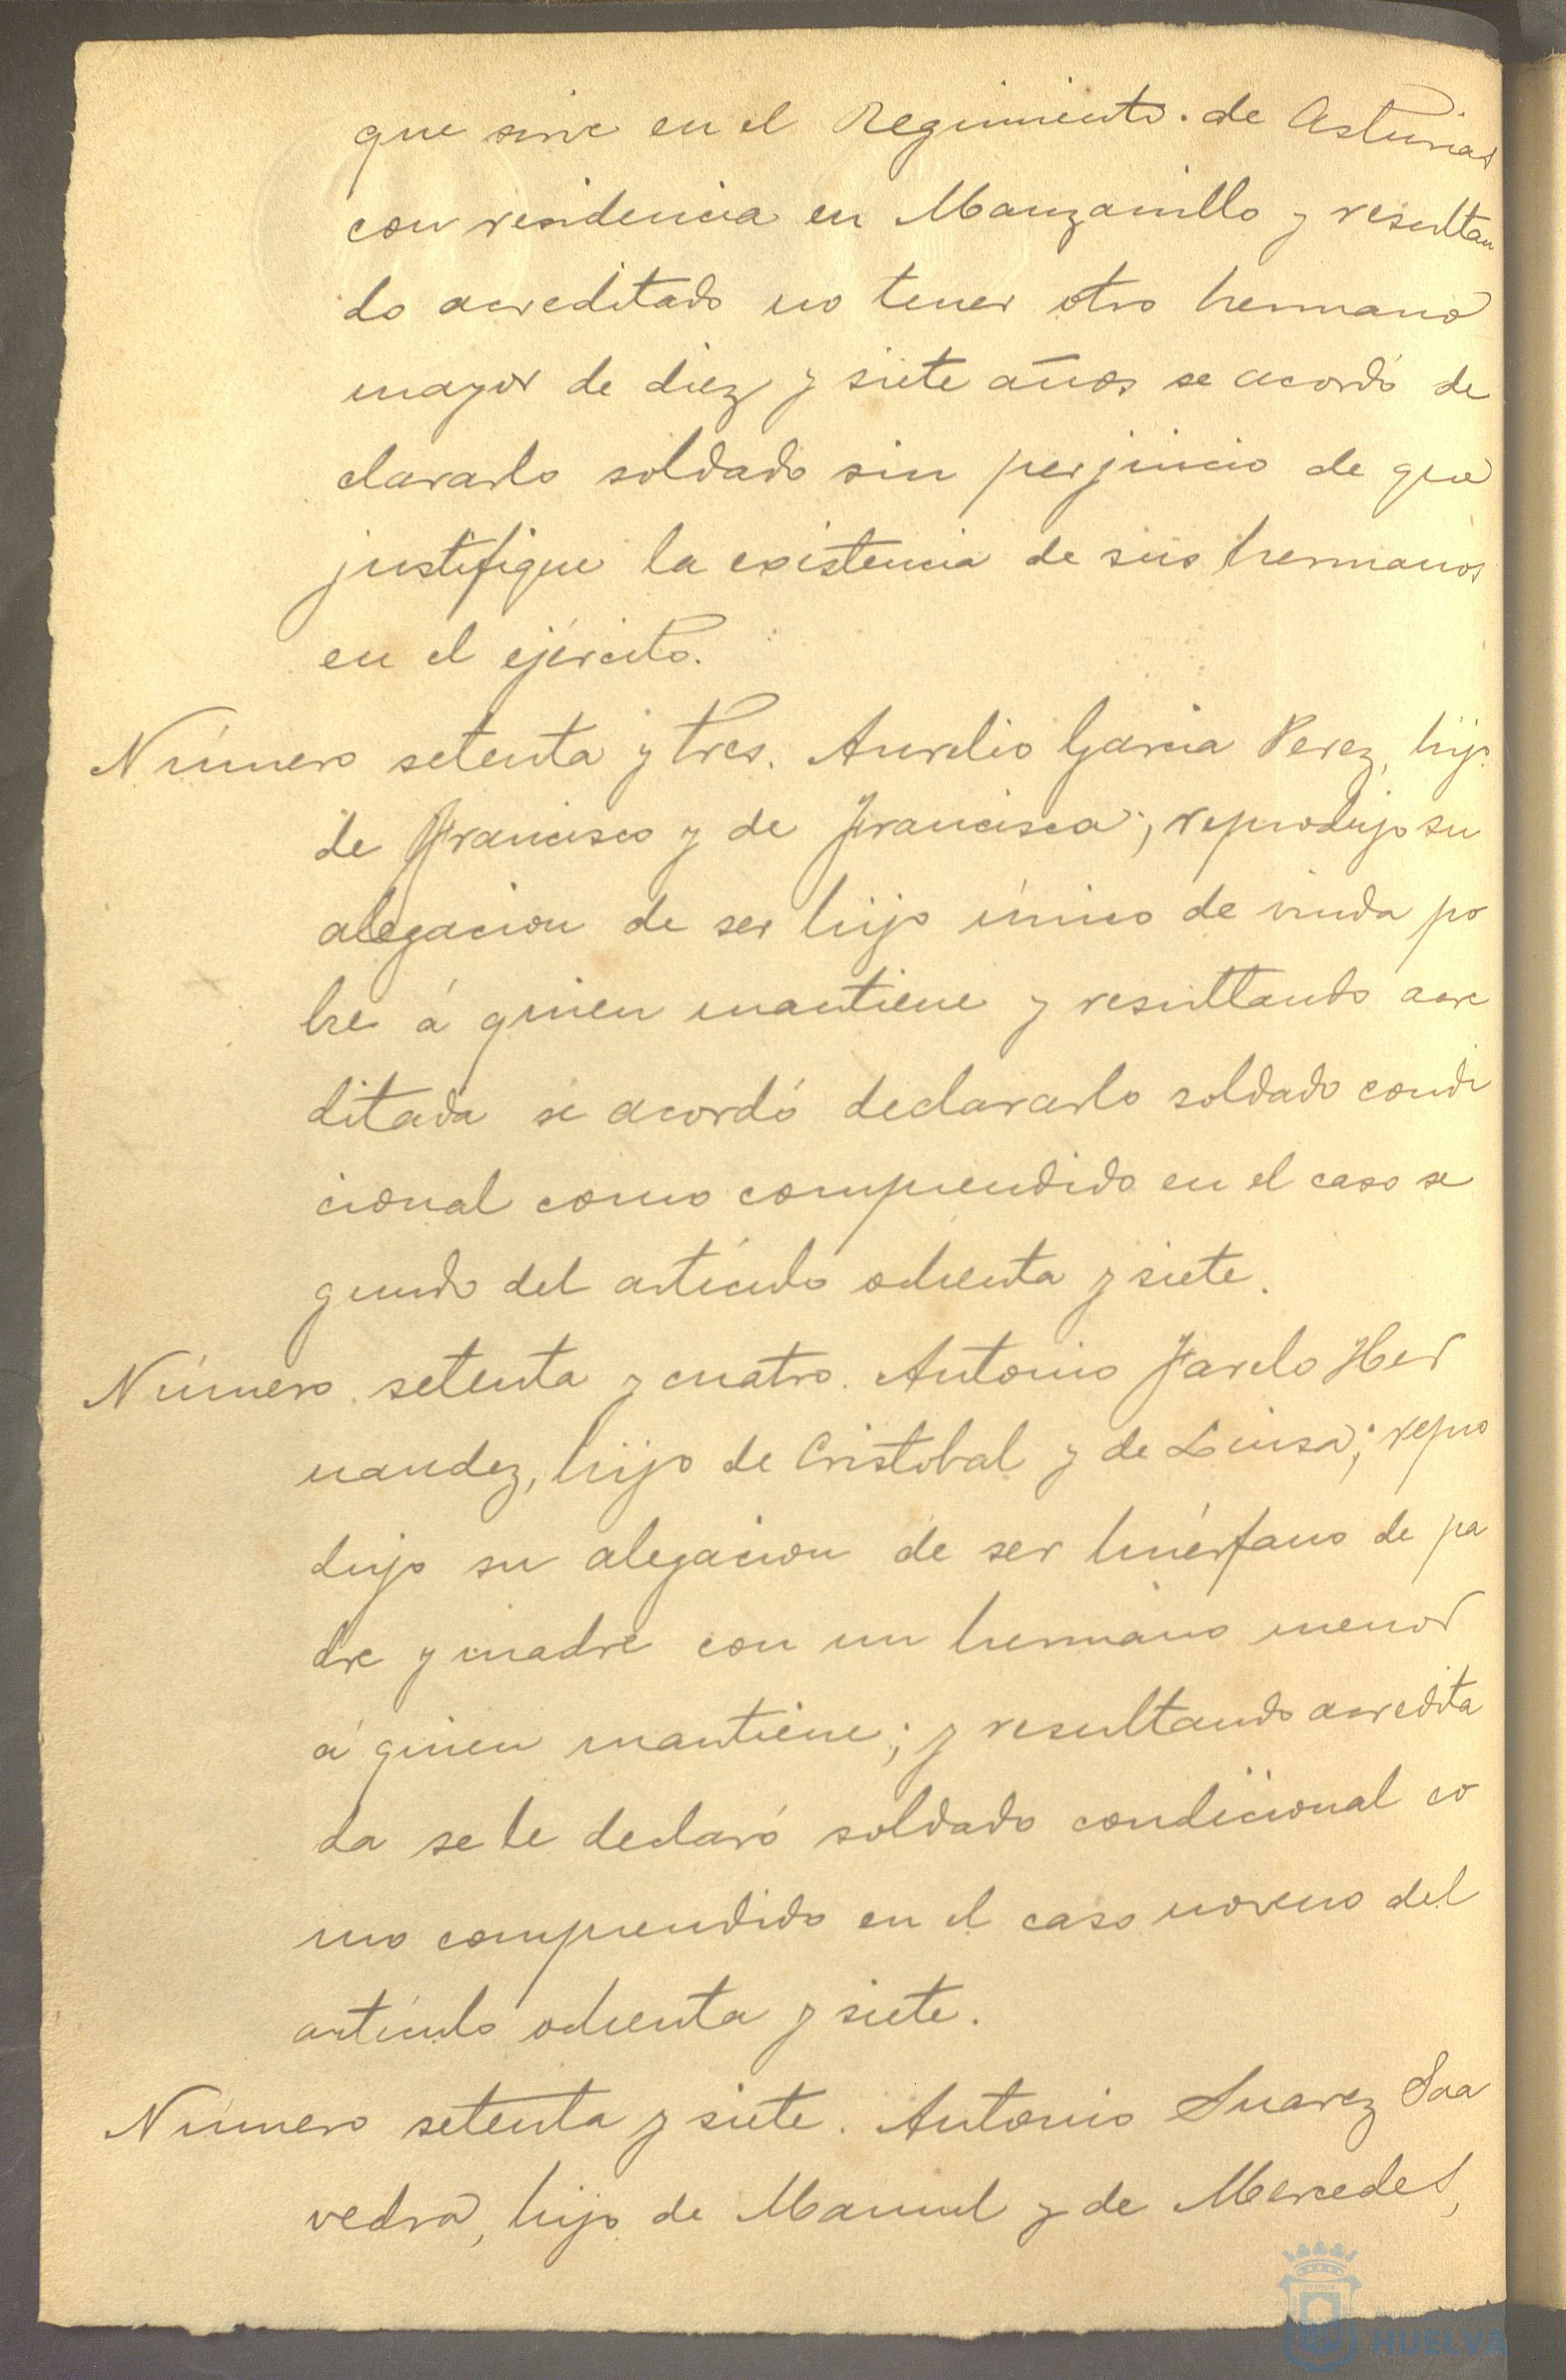 que sirve en el Regimiento. de Asturias
con residencia en Manzanillo y resultan
do acreditado no tener otro hermano
mayor de diez y siete años se acordó de
clararlo soldado sin perjuicio de que
justifique la existencia de sus hermanos
en el ejército.
Número setenta y tres. Aurelio Garcia Perez, hijo
de Francisco y de Francisca; reprodujo su
alegacion de ser hijo único de viuda po
bre á quien mantiene y resultando acre
ditada se acordó declararlo soldado condi
cional como comprendido en el caso se
gundo del artículo ochenta y siete.
Número setenta y cuatro. Antonio Farelo Her
nandez, hijo de Cristobal y de Luisa; repro
dujo su alegacion de ser huérfano de pa
dre y madre con un hermano menor
á quien mantiene; y resultando acredita
da se le declaró soldado condicional co
mo comprendido en el caso noveno del
artículo ochenta y siete.
Número setenta y siete. Antonio Suarez Saa
vedra, hijo de Manuel y de Mercedes,
HUELVA